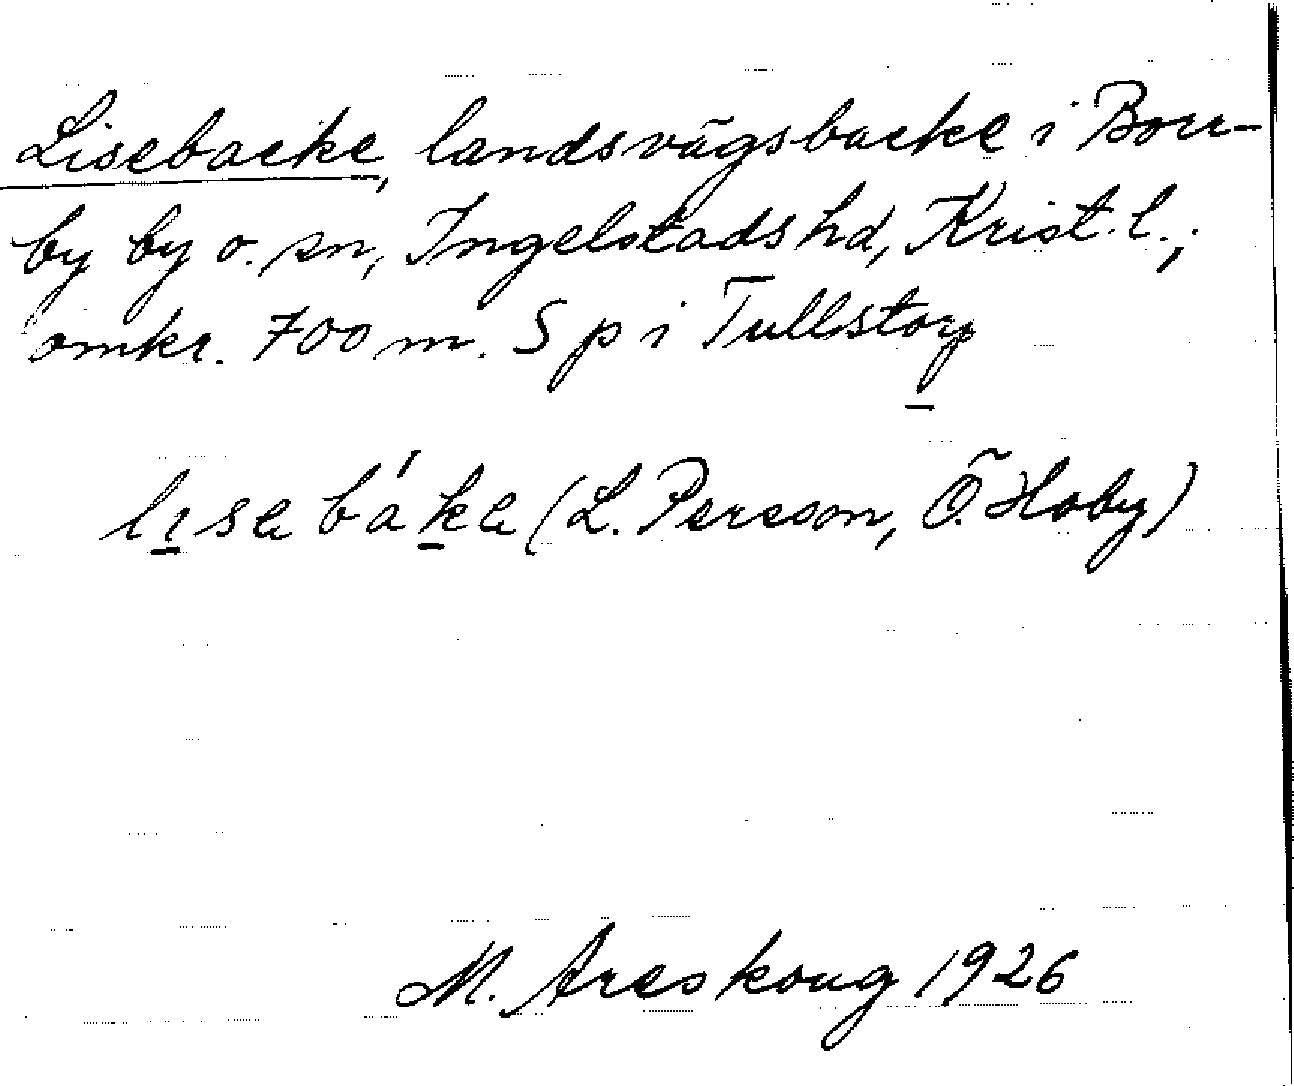 Lisebacke, landsvägsbacke i Borr-
by by o. sn, Ingelstads hd, Krist. l.,
omkr. 700 m. S p i Tullstorp
lɪsa bákɑ (L. Persson, Ö. Hoby)
M. Areskoug 1926